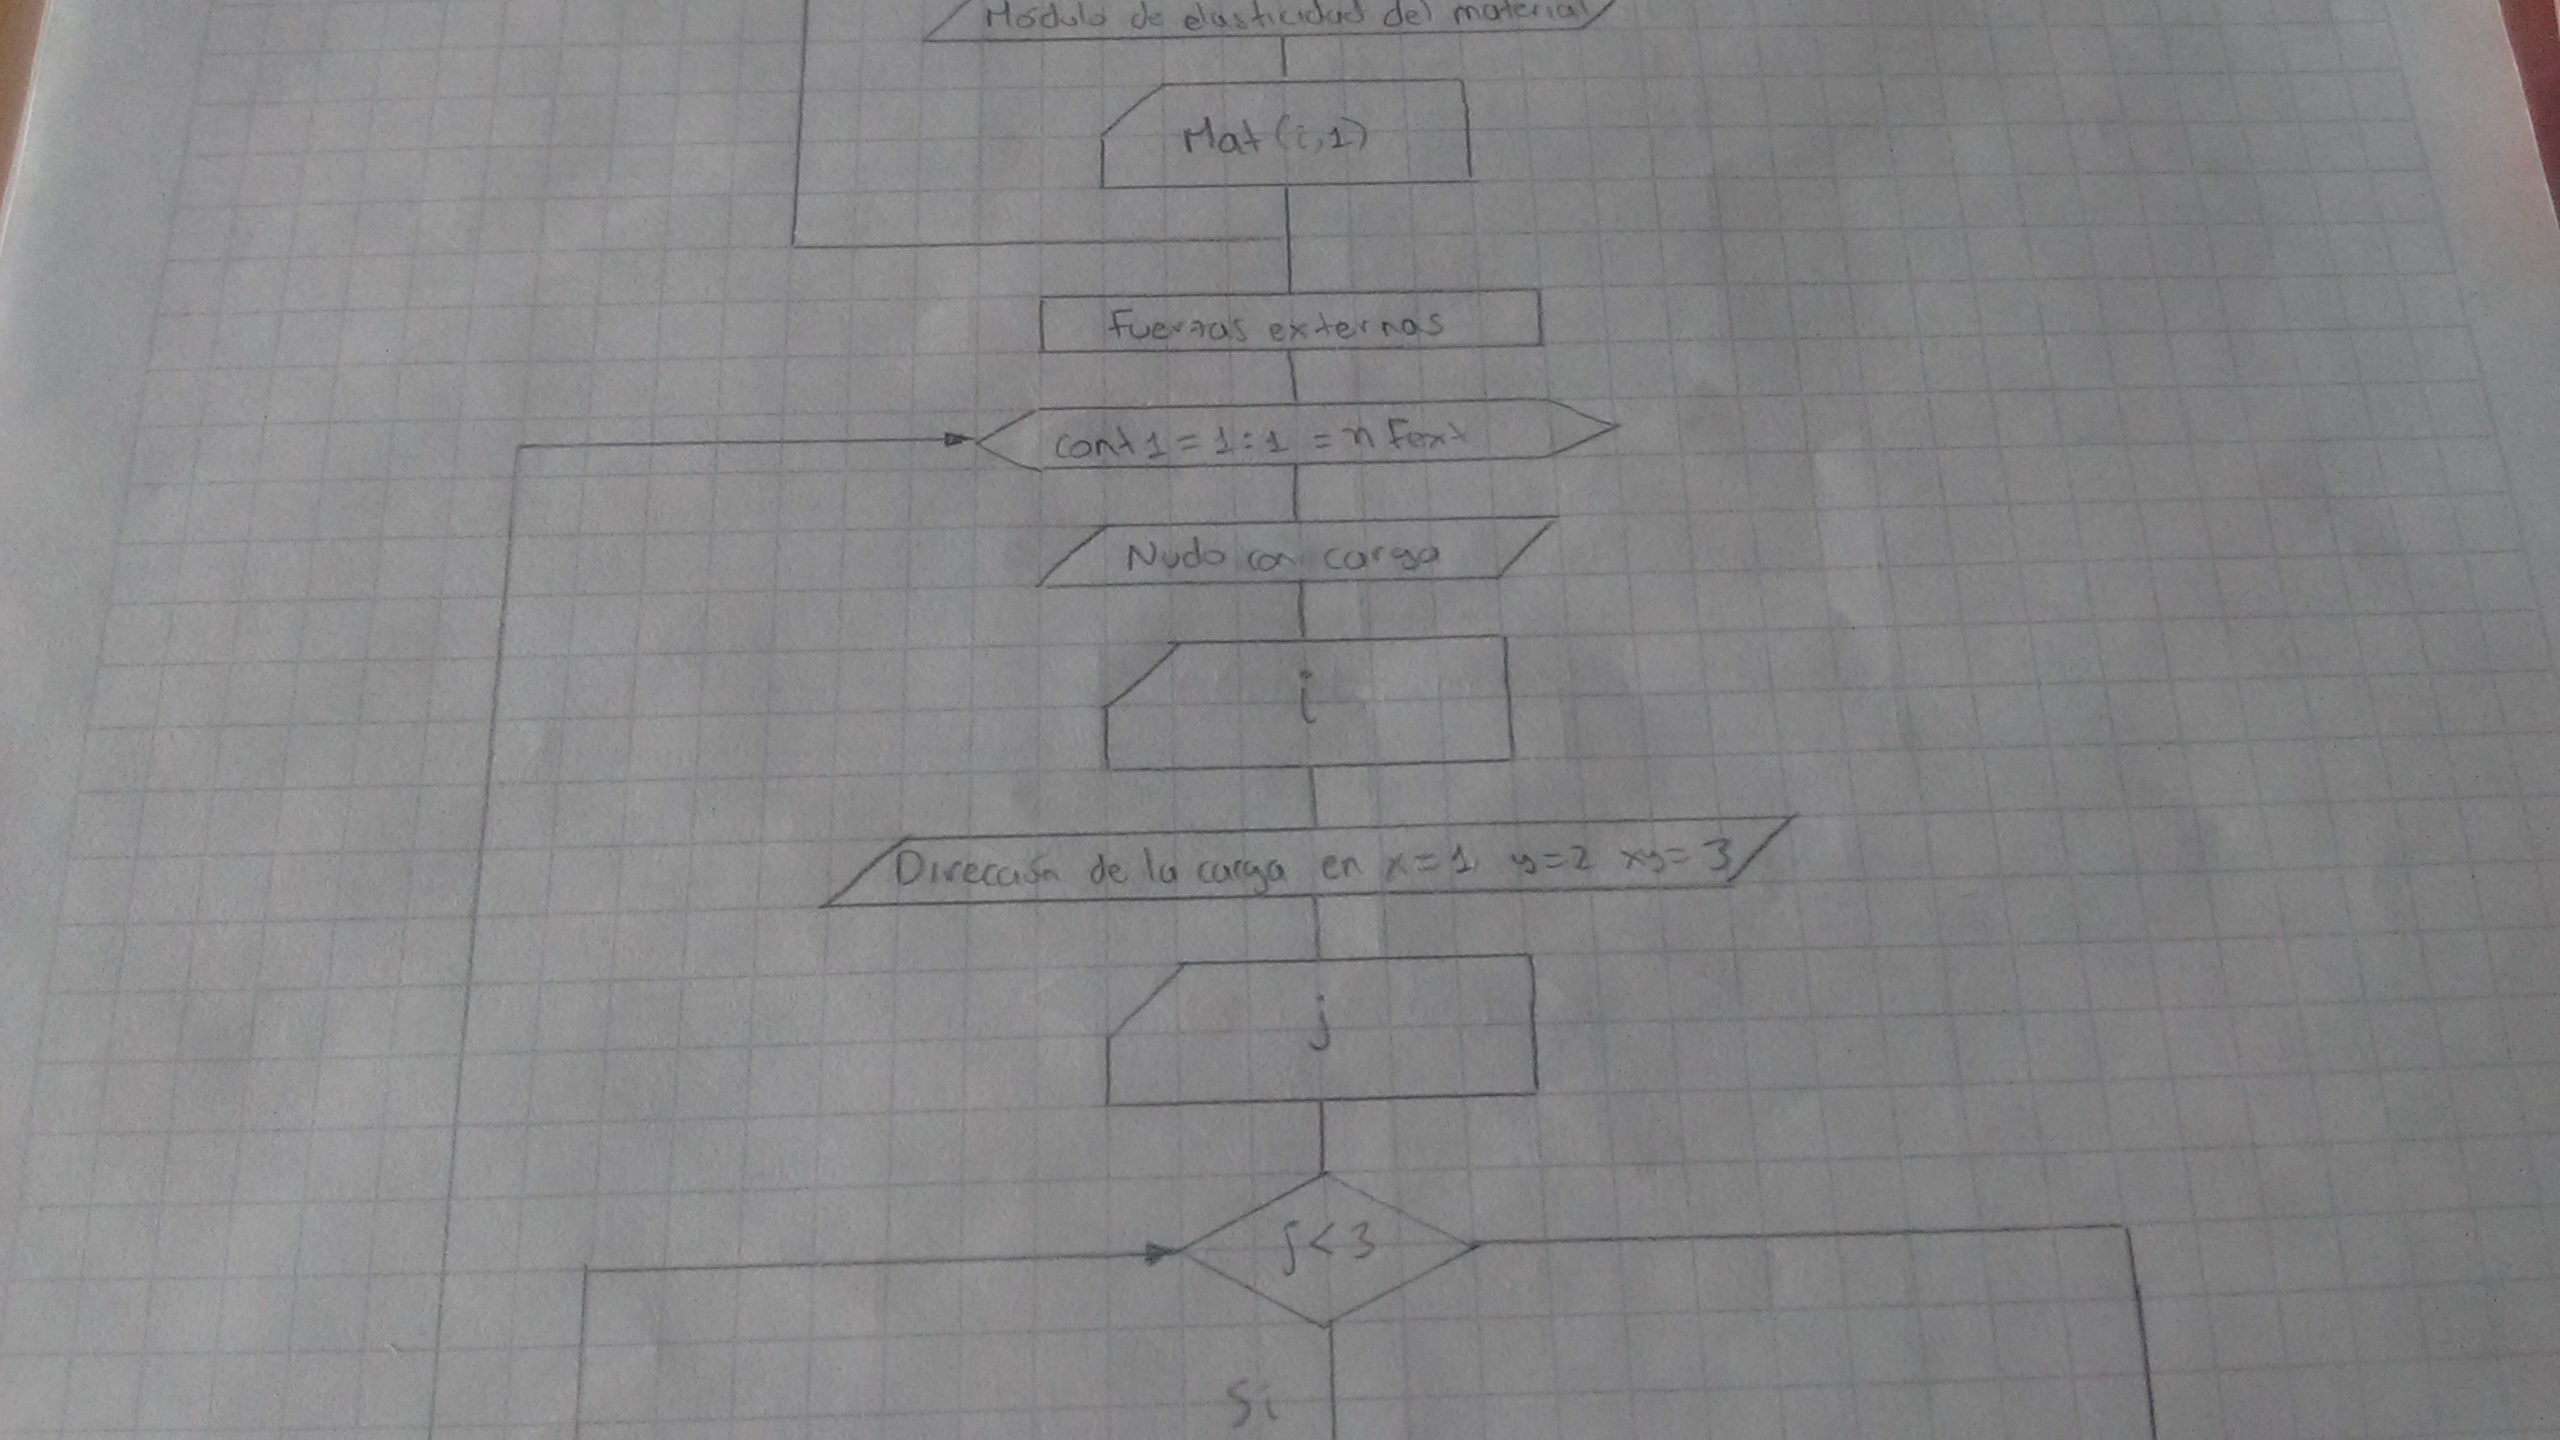 Módulo de elasticidad del material
Mat (i,1)
Fuerzas externas
cont 1 = 1 : 1 = n Fext
Nudo con carga
i
Dirección de la carga en x=1 y=2 xy=3
j
j<3
Si